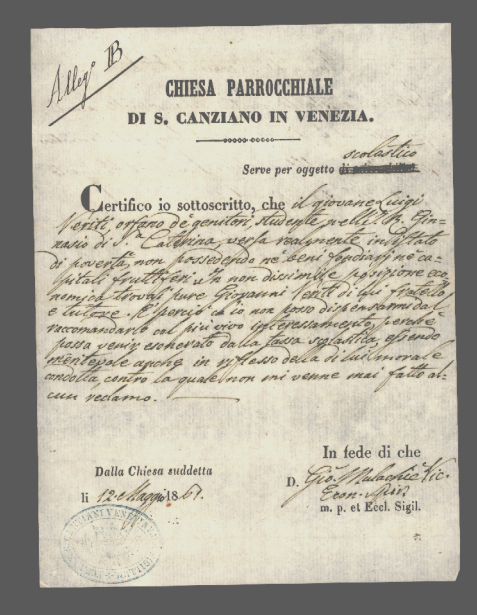 Alleg.º B
CHIESA PARROCCHIALE
DI S. CANZIANO IN VENEZIA.
scolastico
Serve per oggetto
Certifico io sottoscritto, che il giovane Luigi
Veriti, orfano de' genitori, studente nell'I. R. Gin-
nasio di S.ª Catterina, versa realmente in istato
di povertà, non possedendo nè beni fondiarj nè ca-
pitali fruttiferi. In non dissimile posizione eco-
nomica trovasi pure Giovanni Veriti di lui fratello
e tutore. E perciò ch'io non posso dispensarmi dal
raccomandarlo col più vivo interessamento, perchè
possa venir esonerato dalla tassa scolastica, essendo
meritevole anche in riflesso della di lui morale
condotta, contro la quale non mi venne mai fatto al-
cun reclamo.
In fede di che
Dalla Chiesa suddetta
D. Gio. Malachiè Vic.
li 12 Maggio 1861.
Econ.
m. p. et Eccl. Sigil.